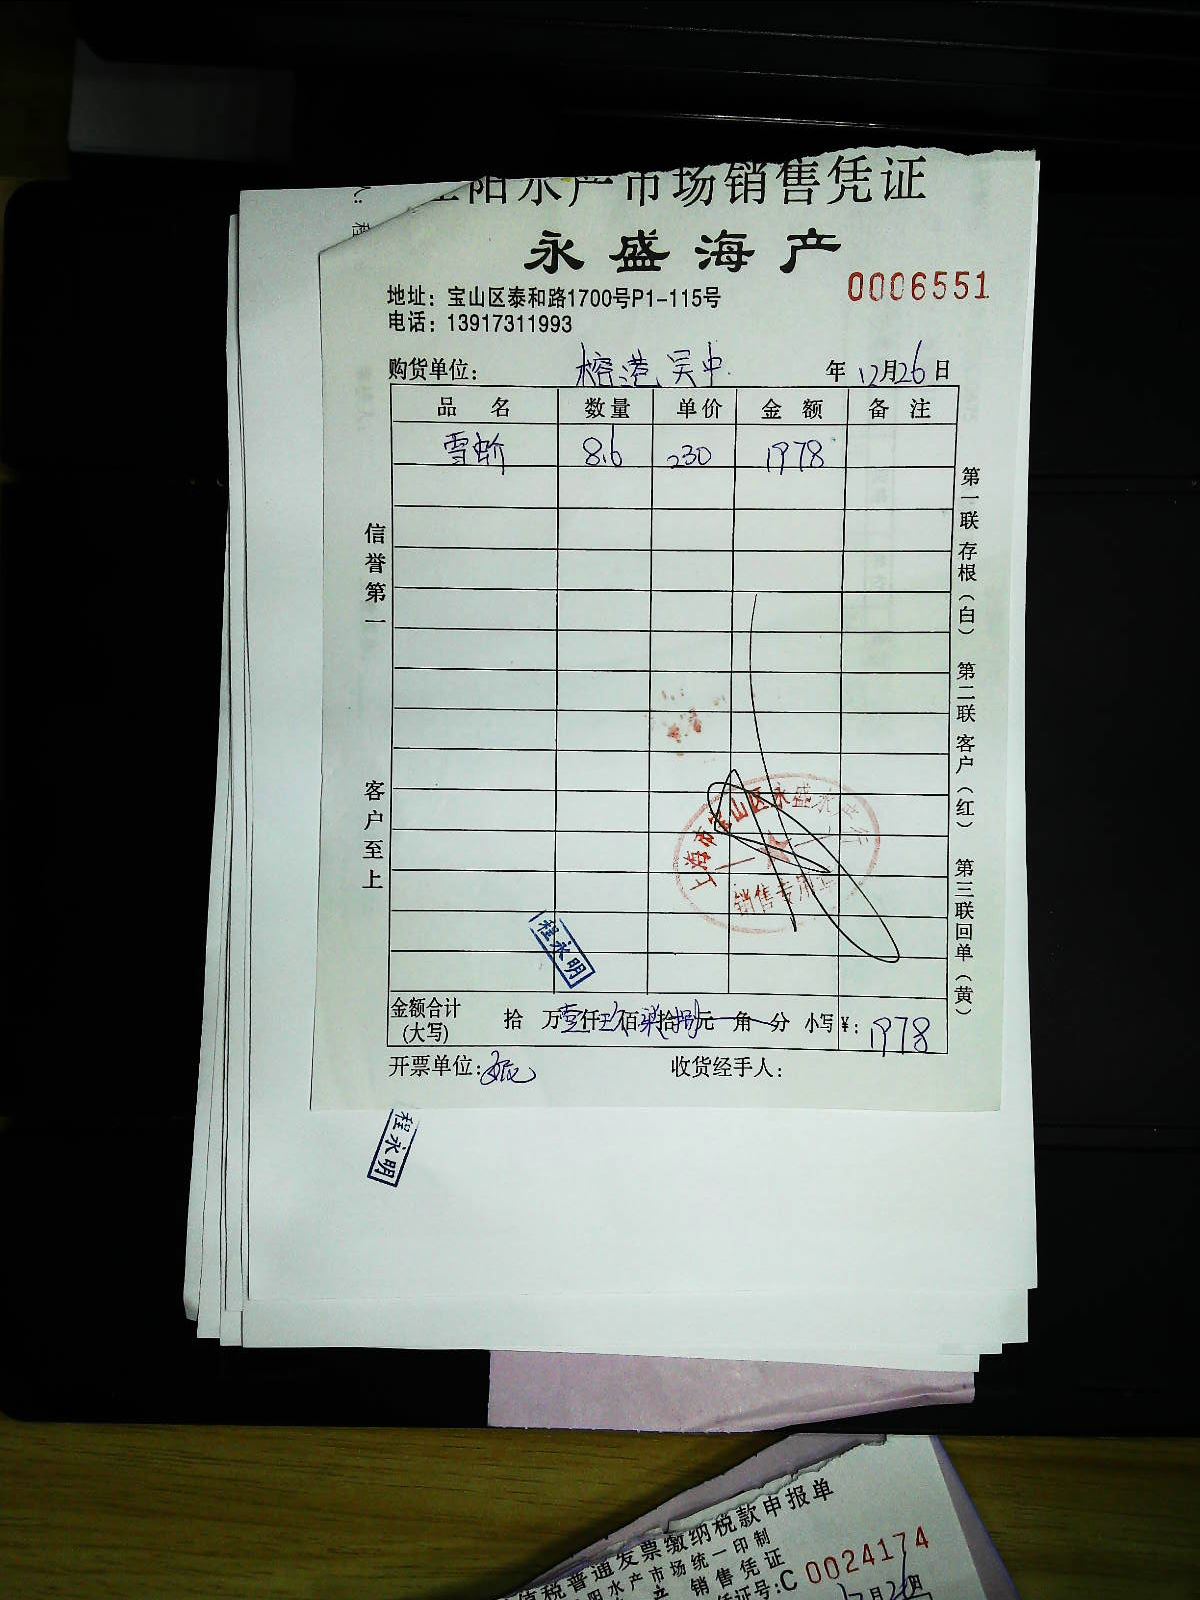 阳水产市场销售凭证
永盛海产
0006551
地址：宝山区泰和路1700号P1-115号
电话：13917311993
购货单位： 榕港吴中 年12月26日
品名 数量 单价 金额 备注
雪蚧 8.6 230 1978
信誉第一
客户至上
第一联存根（白） 第二联客户（红） 第三联回单（黄）
上海市宝山区永盛水产行
销售专用章
程永明
金额合计（大写） 拾 万壹仟玖佰柒拾捌元 角 分 小写￥：1978
开票单位： 收货经手人：
程永明
值税普通发票缴纳税款申报单
阳水产市场统一印制
产 销售凭证
证号：C 0024174